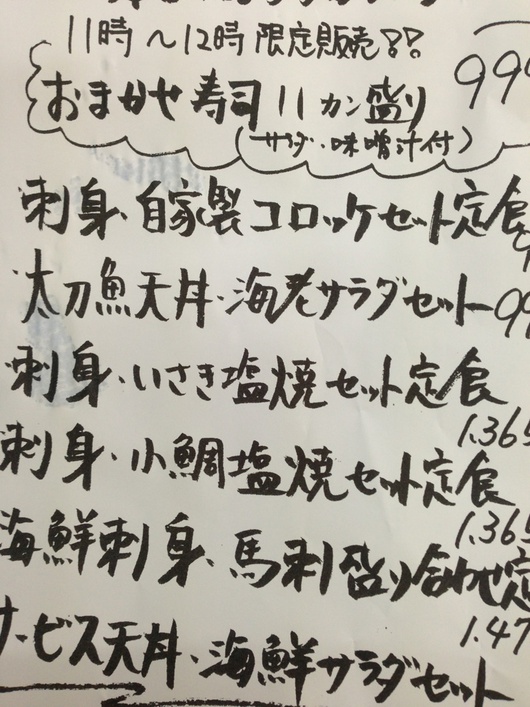 11時〜12時 限定販売!!
おまかせ寿司 11カン盛り 99
(サラダ・味噌汁付)
刺身・自家製コロッケセット定食
太刀魚天丼・海老サラダセット 99
刺身・いさき塩焼セット定食
1.365
刺身・小鯛塩焼セット定食
1.365
海鮮刺身・馬刺盛り合わせ定
1.47
サービス天丼・海鮮サラダセット